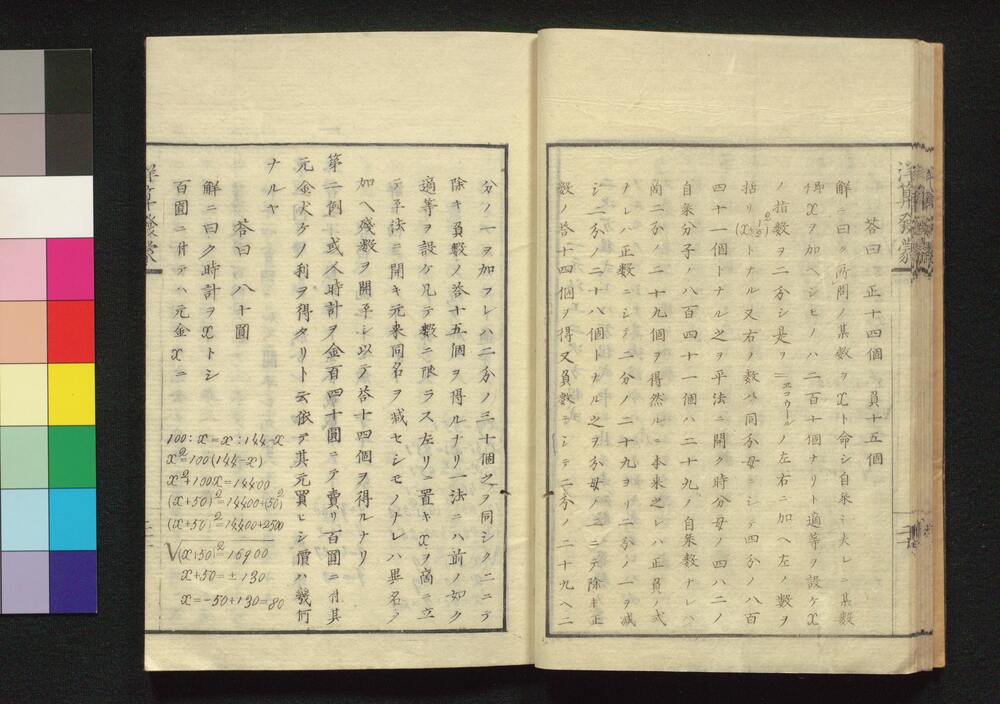 答曰 正十四個 負十五個
解ニ曰ク所問ノ某數ヲxト命シ自乘シ夫レニ某數
卽xヲ加ヘシモノハ二百十個ナリト適等ヲ設ケx
ノ指數ヲ二分シ是ヲ=エコウールノ左右ニ加ヘ左ノ數ヲ
括リ(x+1/2)²トナル又右ノ數ハ同分母ニシテ四分ノ八百
四十一個トナル之ヲ平法ニ開ク時分母ノ四ハ二ノ
自乘分子ノ八百四十一個ハ二十九ノ自乘數ナレハ
商二分ノ二十九個ヲ得然ルニ本來之レハ正員ノ式
ナレハ正數ニシテ二分ノ二十九ヨリ二分ノ一ヲ減
シ二分ノ二十八個トナル之ヲ分母ノ二ニテ除キ正
數ノ答十四個ヲ得又負數ニシテ二分ノ二十九ヘ二
分ノ一ヲ加フレハ二分ノ三十個之ヲ同シク二ニテ
除キ負數ノ答十五個ヲ得ルナリ一法ニハ前ノ如ク
適等ヲ設ケ凡テ數ニ限ラス左リニ置キxヲ商ニ立
テ平法ニ開キ元来同名ヲ减セシモノナレハ異名ヲ
加ヘ殘數ヲ開平シ以テ答十四個ヲ得ルナリ
第二例 或人時計ヲ金百四十圓ニテ賣リ百圓ニ付其
元金丈ケノ利ヲ得タリト云依テ其元買ヒシ價ハ幾何
ナルヤ
答曰 八十圓
解ニ曰ク時計ヲxトシ
百圓ニ付テハ元金xニ
100:x=x:144-x
x²=100(144-x)
x²+100x=14400
(x+50)²=14400+(50)²
(x+50)²=14400+2500
√(x+50)²=16900
x+50=±130
x=-50+130=80
洋算發蒙